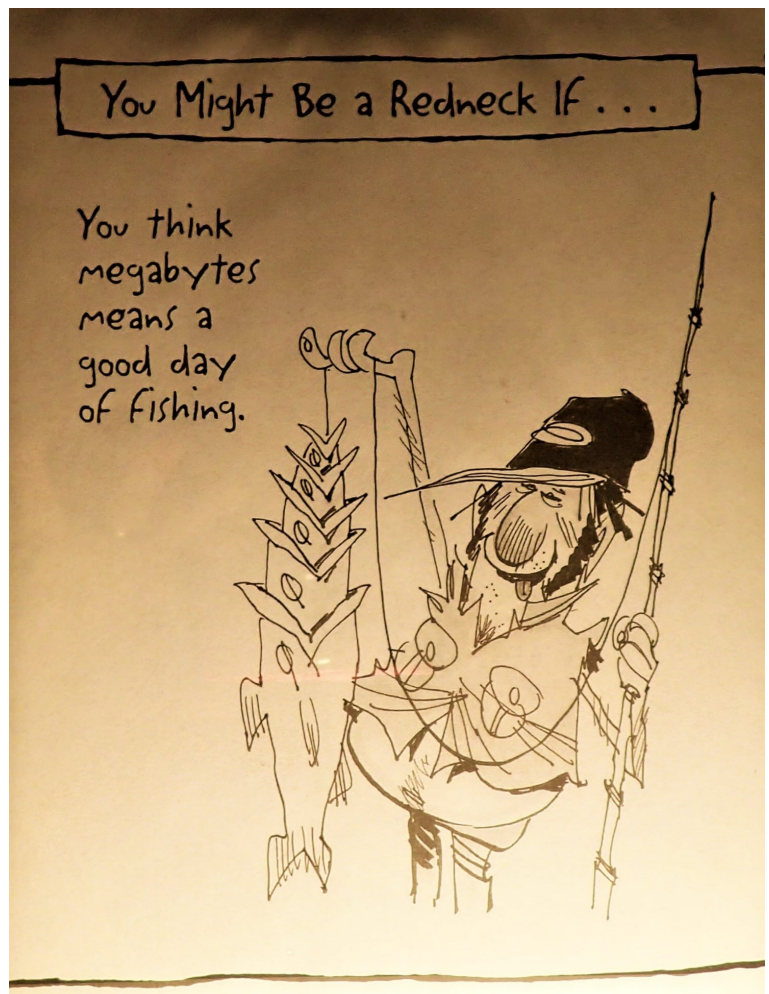 You Might Be a Redneck If . . .
You think
megabytes
means a
good day
of fishing.